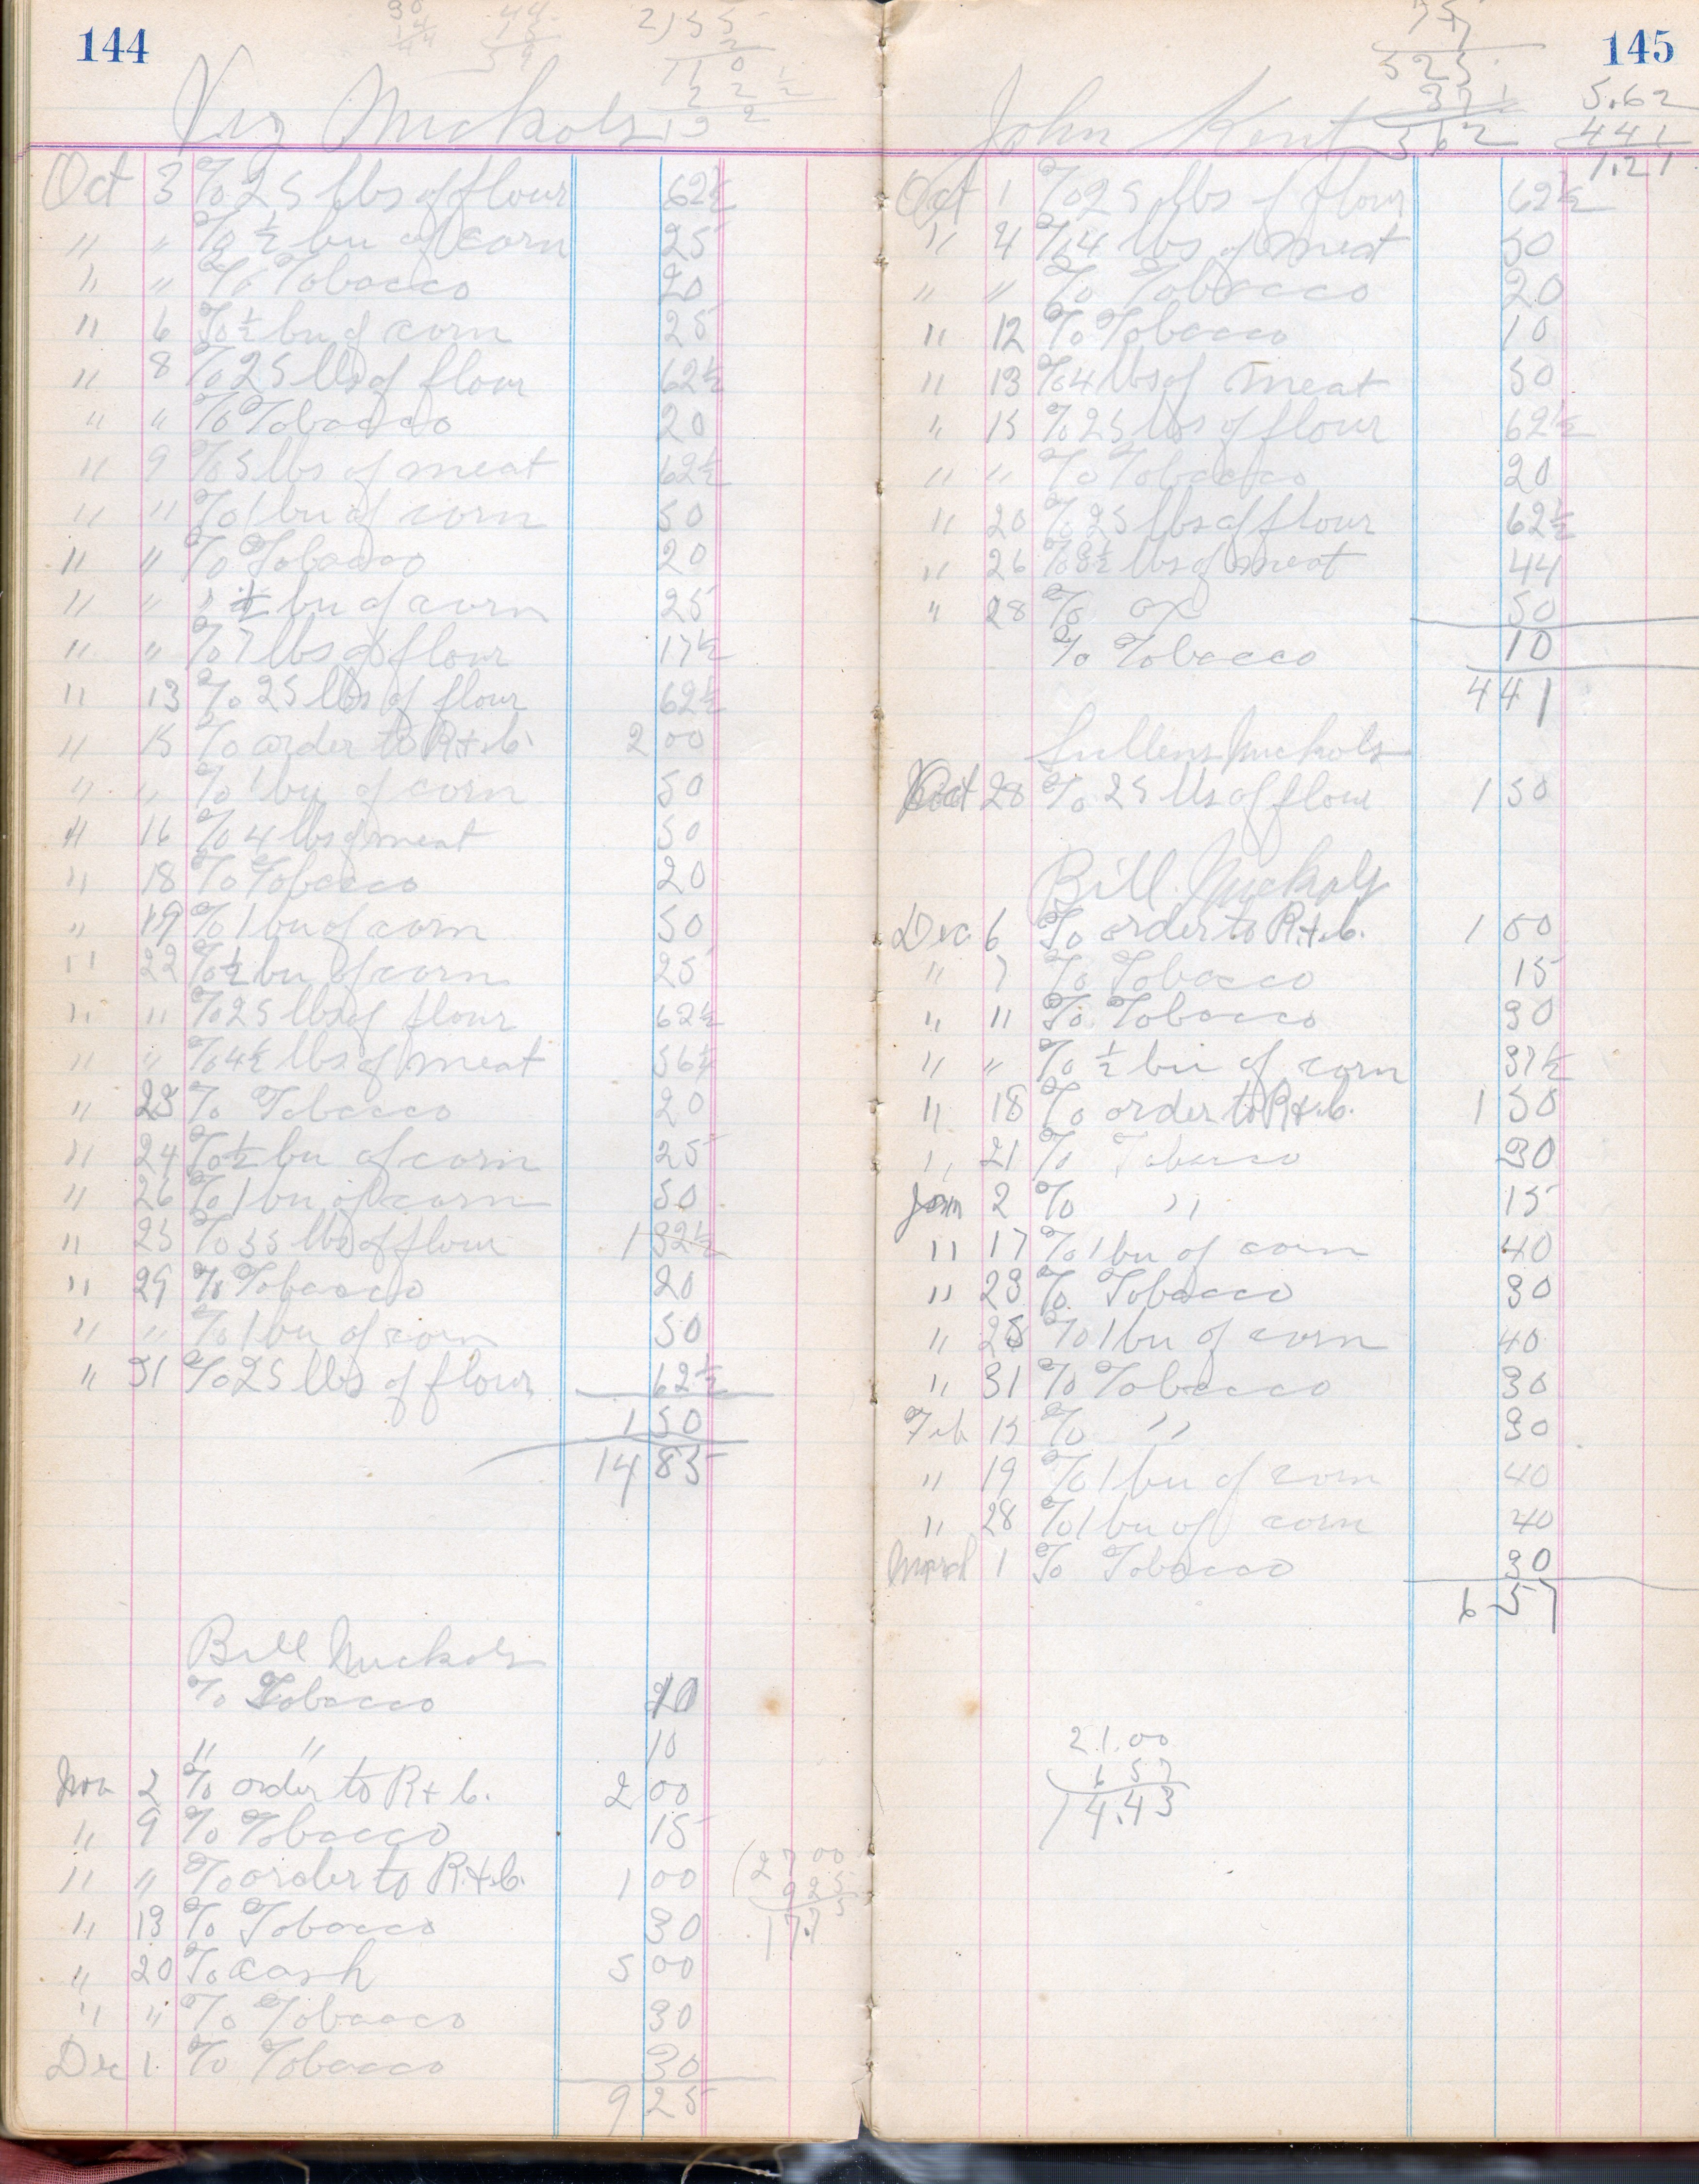 144
30
14
44
44
15
59
2)55
2
110
2 2 1/2
13 2
Nichols
Oct 3 To 25 lbs of flour 62½
" " To ½ bu of corn 25
" " To Tobacco 20
" 6 To ½ bu of corn 25
" 8 To 25 lbs of flour 62½
" " To Tobacco 20
" 9 To 5 lbs of meat 62½
" " To 1 bu of corn 50
" " To Tobacco 20
" " " ½ bu of corn 25
" " To 7 lbs of flour 17½
" 13 To 25 lbs of flour 62½
" 15 To order to R+b. 2 00
" " To 1 bu of corn 50
" 16 To 4 lbs of meat 50
" 18 To Tobacco 20
" 19 To 1 bu of corn 50
" 22 To ½ bu of corn 25
" " To 25 lbs of flour 62½
" " To 4½ lbs of meat 56¼
" 23 To Tobacco 20
" 24 To ½ bu of corn 25
" 26 To 1 bu of corn 50
" 25 To 55 lbs of flour 1 32½
" 29 To Tobacco 20
" " To 1 bu of corn 50
" 31 To 25 lbs of flour 62½
1 50
14 85
Bill Nichols
To Tobacco
" " 10
Nov 2 To order to R+b. 2 00
" 9 To Tobacco 15
" " To order to R.+b. 1 00
" 13 To Tobacco 30
" 20 To cash 5 00
" " To Tobacco 30
Dec 1 To Tobacco 30
9 25
27 00
9 25
17.75
145
75
7
525
37 1
562
5.62
441
1.21
John Kent
Oct 1 To 25 lbs of flour 62½
" 4 To 4 lbs of meat 50
" " To Tobacco 20
" 12 To Tobacco 10
" 13 To 4 lbs of meat 50
" 15 To 25 lbs of flour 62½
" " To Tobacco 20
" 20 To 25 lbs of flour 62½
" 26 To 3½ lbs of meat 44
" 28 To ox 50
To Tobacco 10
4 41
Nichols
Oct 28 To 25 lbs of flour 1 50
Bill Nichols
Dec 6 To order to R.+b. 1 00
" 7 To Tobacco 15
" 11 To Tobacco 30
" " To ½ bu of corn 37½
" 18 To order to R+.b. 1 50
" 21 To Tobacco 30
Jan 2 To " 15
" 17 To 1 bu of corn 40
" 23 To Tobacco 30
" 28 To 1 bu of corn 40
" 31 To Tobacco 30
Feb 15 To " 30
" 19 To 1 bu of corn 40
" 28 To 1 bu of corn 40
March 1 To Tobacco 30
6 57
21.00
6 57
14.43